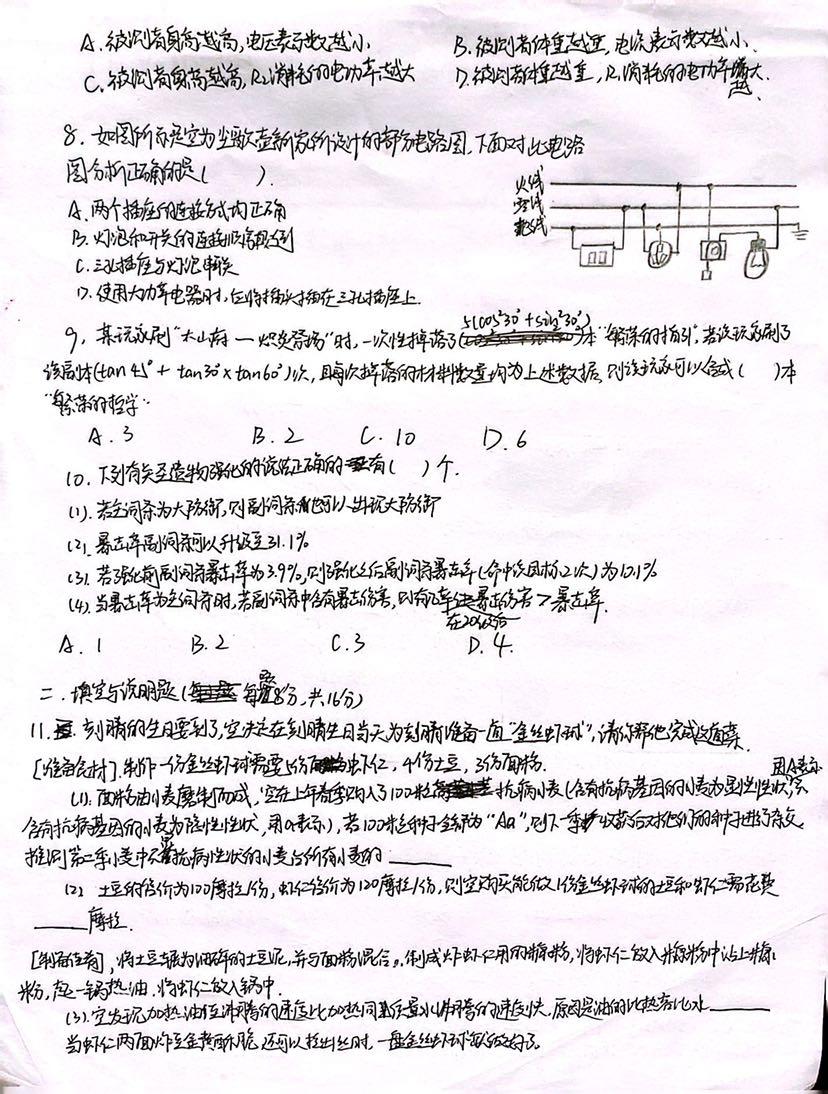 A. 被测者身高越高,电压表示数越小 B. 被测者体重越重,电流表示数越小.
C. 被测者身高越高,R₁消耗的电功率越大 D. 被测者体重越重,R₁消耗的电功率越大.
8. 如图所示是空为尘歌壶新家所设计的部分电路图,下面对此电路
图分析正确的是( ).
火线
零线
地线
A. 两个插座的连接方式均正确
B. 灯泡和开关的连接顺序接倒
C. 三孔插座与灯泡串联
D. 使用大功率电器时,应将插头插在三孔插座上.
9. 某玩家刷“太山府——炽炎登场”时,一次性掉落了5(cos²30°+sin²30°)本“繁荣的指引”,若该玩家刷了
该副本(tan45°+tan30°×tan60°)次,且每次掉落的材料数量均为上述数据,则该玩家可以合成( )本
“繁荣的哲学”
A. 3 B. 2 C. 10 D. 6
10. 下列有关圣遗物强化的说法正确的有( )个.
(1). 若主词条为大防御,则副词条也可以出现大防御
(2). 暴击率副词条可以升级至31.1%
(3). 若强化前副词条暴击率为3.9%,则强化之后副词条暴击率(命中该目标2次)为10.1%
(4). 当暴击率为主词条时,若副词条中含有暴击伤害,则有几率使暴击伤害>暴击率.
在20级后
A. 1 B. 2 C. 3 D. 4.
二. 填空与说明题(每题8分,共16分)
11. 刻晴的生日要到了,空决定在刻晴生日当天为刻晴准备一道“金丝虾球”,请你帮他完成这道菜.
[准备食材]. 制作一份金丝虾球需要5份虾仁,4份土豆,3份面粉. 用A表示
(1). 面粉由小麦磨制而成,空在上年春季购入了100粒抗病小麦(含有抗病基因的小麦为显性性状,不
含有抗病基因的小麦为隐性性状,用a表示),若100粒种子全部为“Aa”,则下一季收获后对他们的种子进行杂交,
推测第二季小麦中不抗病性状的小麦占所有小麦的______
(2). 土豆的价格为100摩拉/份,虾仁价格为120摩拉/份,则空购买能做1份金丝虾球的土豆和虾仁需花费
______摩拉.
[制备佳肴],将土豆碾为细碎的土豆泥,并与面粉混合,制成炸虾仁用的裹粉,将虾仁放入裹粉中沾上裹
粉,起一锅热油,将虾仁放入锅中.
(3). 空发现加热油至沸腾的速度比加热同等质量水沸腾的速度快,原因是油的比热容比水______
当虾仁两面炸至金黄酥脆,还可以拉出丝时,一盘金丝虾球就做好了.